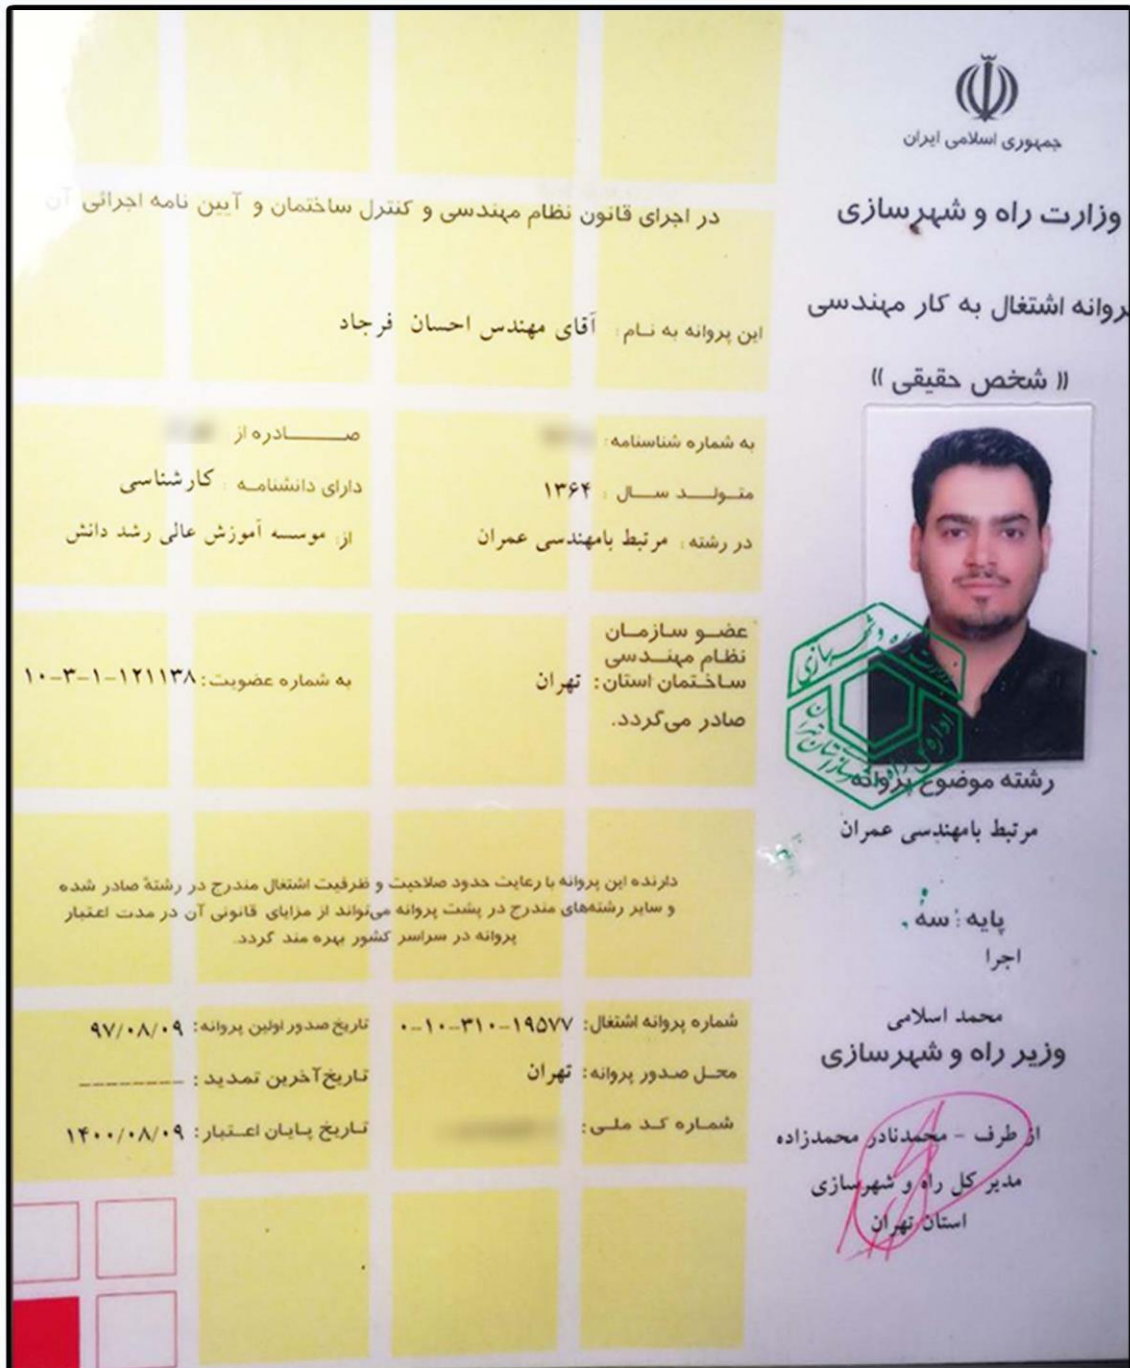 جمهوری اسلامی ایران
وزارت راه و شهرسازی
پروانه اشتغال به کار مهندسی
(( شخص حقیقی ))
رشته موضوع پروانه
مرتبط بامهندسی عمران
پایه : سه
اجرا
محمد اسلامی
وزیر راه و شهرسازی
از طرف - محمدنادر محمدزاده
مدیر کل راه و شهرسازی
استان تهران
در اجرای قانون نظام مهندسی و کنترل ساختمان و آیین نامه اجرائی آن
این پروانه به نام: آقای مهندس احسان فرجاد
به شماره شناسنامه:
صادره از
متولد سال : ۱۳۶۴
دارای دانشنامه : کارشناسی
در رشته: مرتبط بامهندسی عمران
از: موسسه آموزش عالی رشد دانش
عضو سازمان
نظام مهندسی
ساختمان استان: تهران
به شماره عضویت: ۱۰-۳-۱-۱۲۱۱۳۸
صادر می‌گردد.
دارنده این پروانه با رعایت حدود صلاحیت و ظرفیت اشتغال مندرج در رشتهٔ صادر شده
و سایر رشته‌های مندرج در پشت پروانه می‌تواند از مزایای قانونی آن در مدت اعتبار
پروانه در سراسر کشور بهره مند گردد.
شماره پروانه اشتغال: ۱۹۵۷۷-۳۱۰-۱۰-۰
تاریخ صدور اولین پروانه: ۹۷/۰۸/۰۹
محل صدور پروانه: تهران
تاریخ آخرین تمدید : --------
شماره کد ملی:
تاریخ پایان اعتبار: ۱۴۰۰/۰۸/۰۹